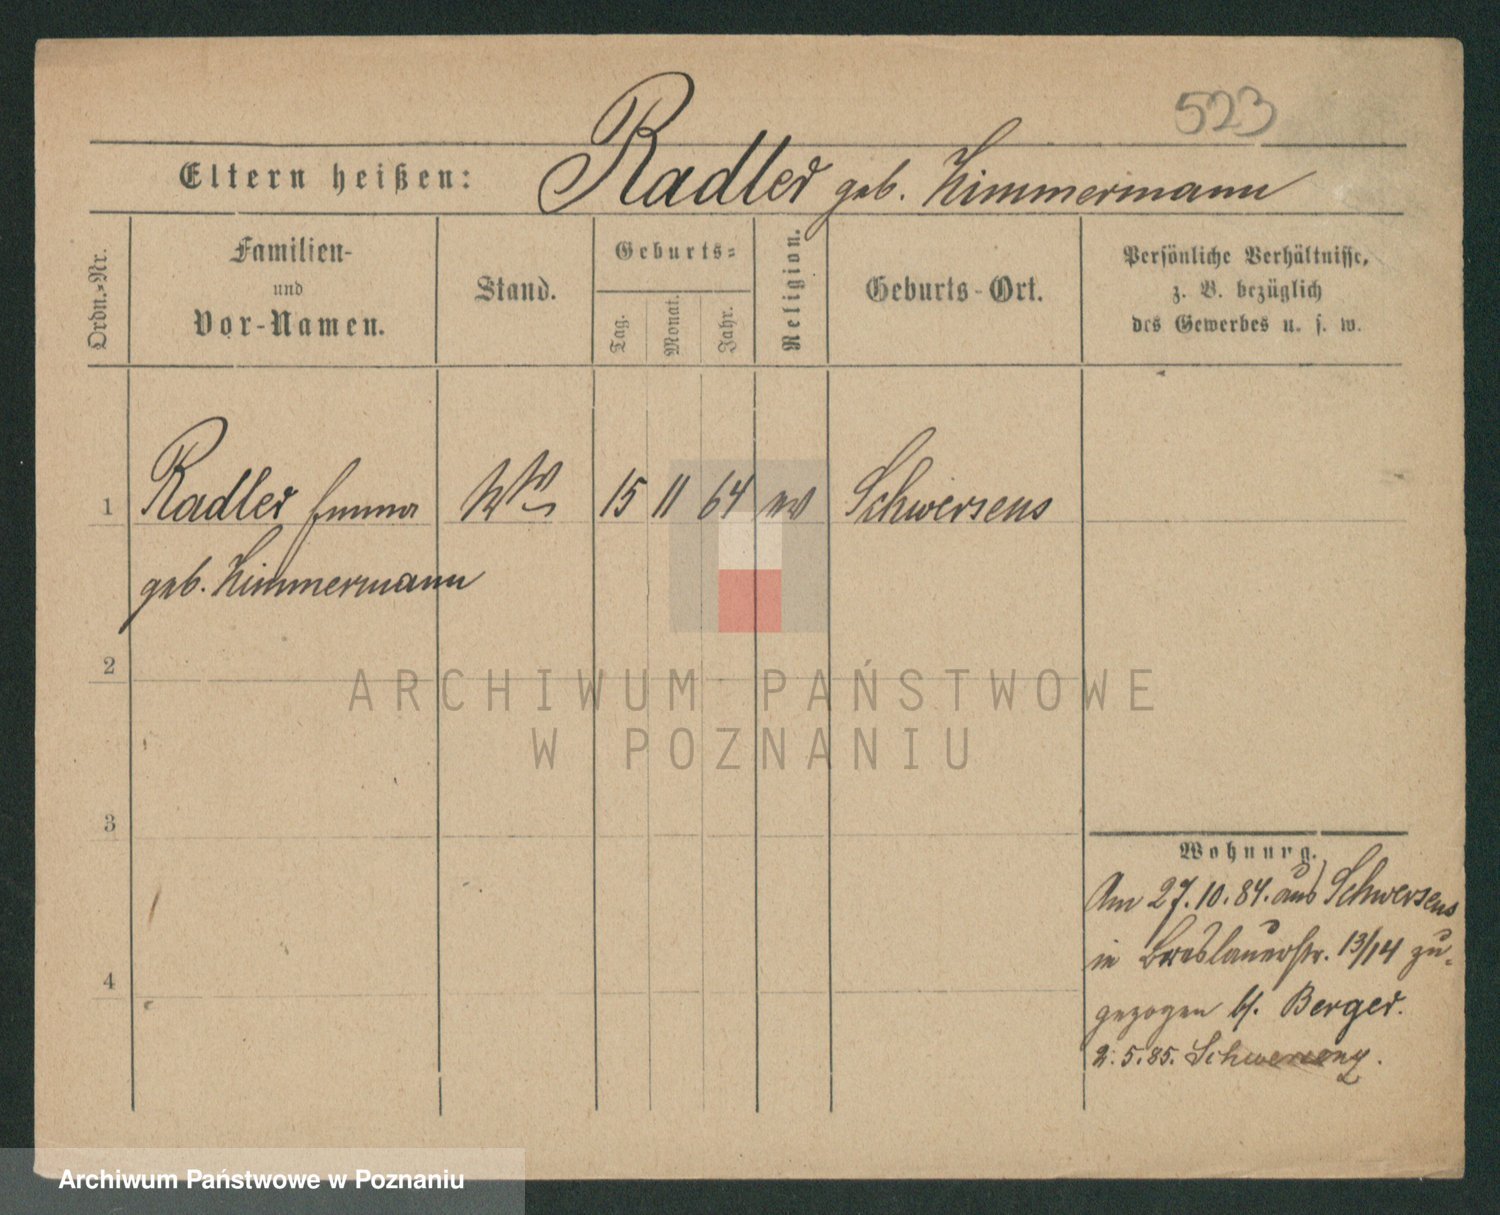 523
Eltern heißen: Radler geb. Zimmermann
Ordn.-Nr.
Familien-
und
Vor-Namen.
Stand.
Geburts-
Tag.
Monat.
Jahr.
Religion.
Geburts-Ort.
Persönliche Verhältnisse,
z. B. bezüglich
des Gewerbes u. s. w.
1 Radler Emma 15 11 64 Schwersens
geb. Zimmermann
2
3
4
Wohnung.
Am 27.10.84. aus Schwersens
in Breslauerstr. 13/14 zu-
gezogen b/. Berger.
2.5.85. Schwersenz.
ARCHIWUM PAŃSTWOWE
W POZNANIU
Archiwum Państwowe w Poznaniu